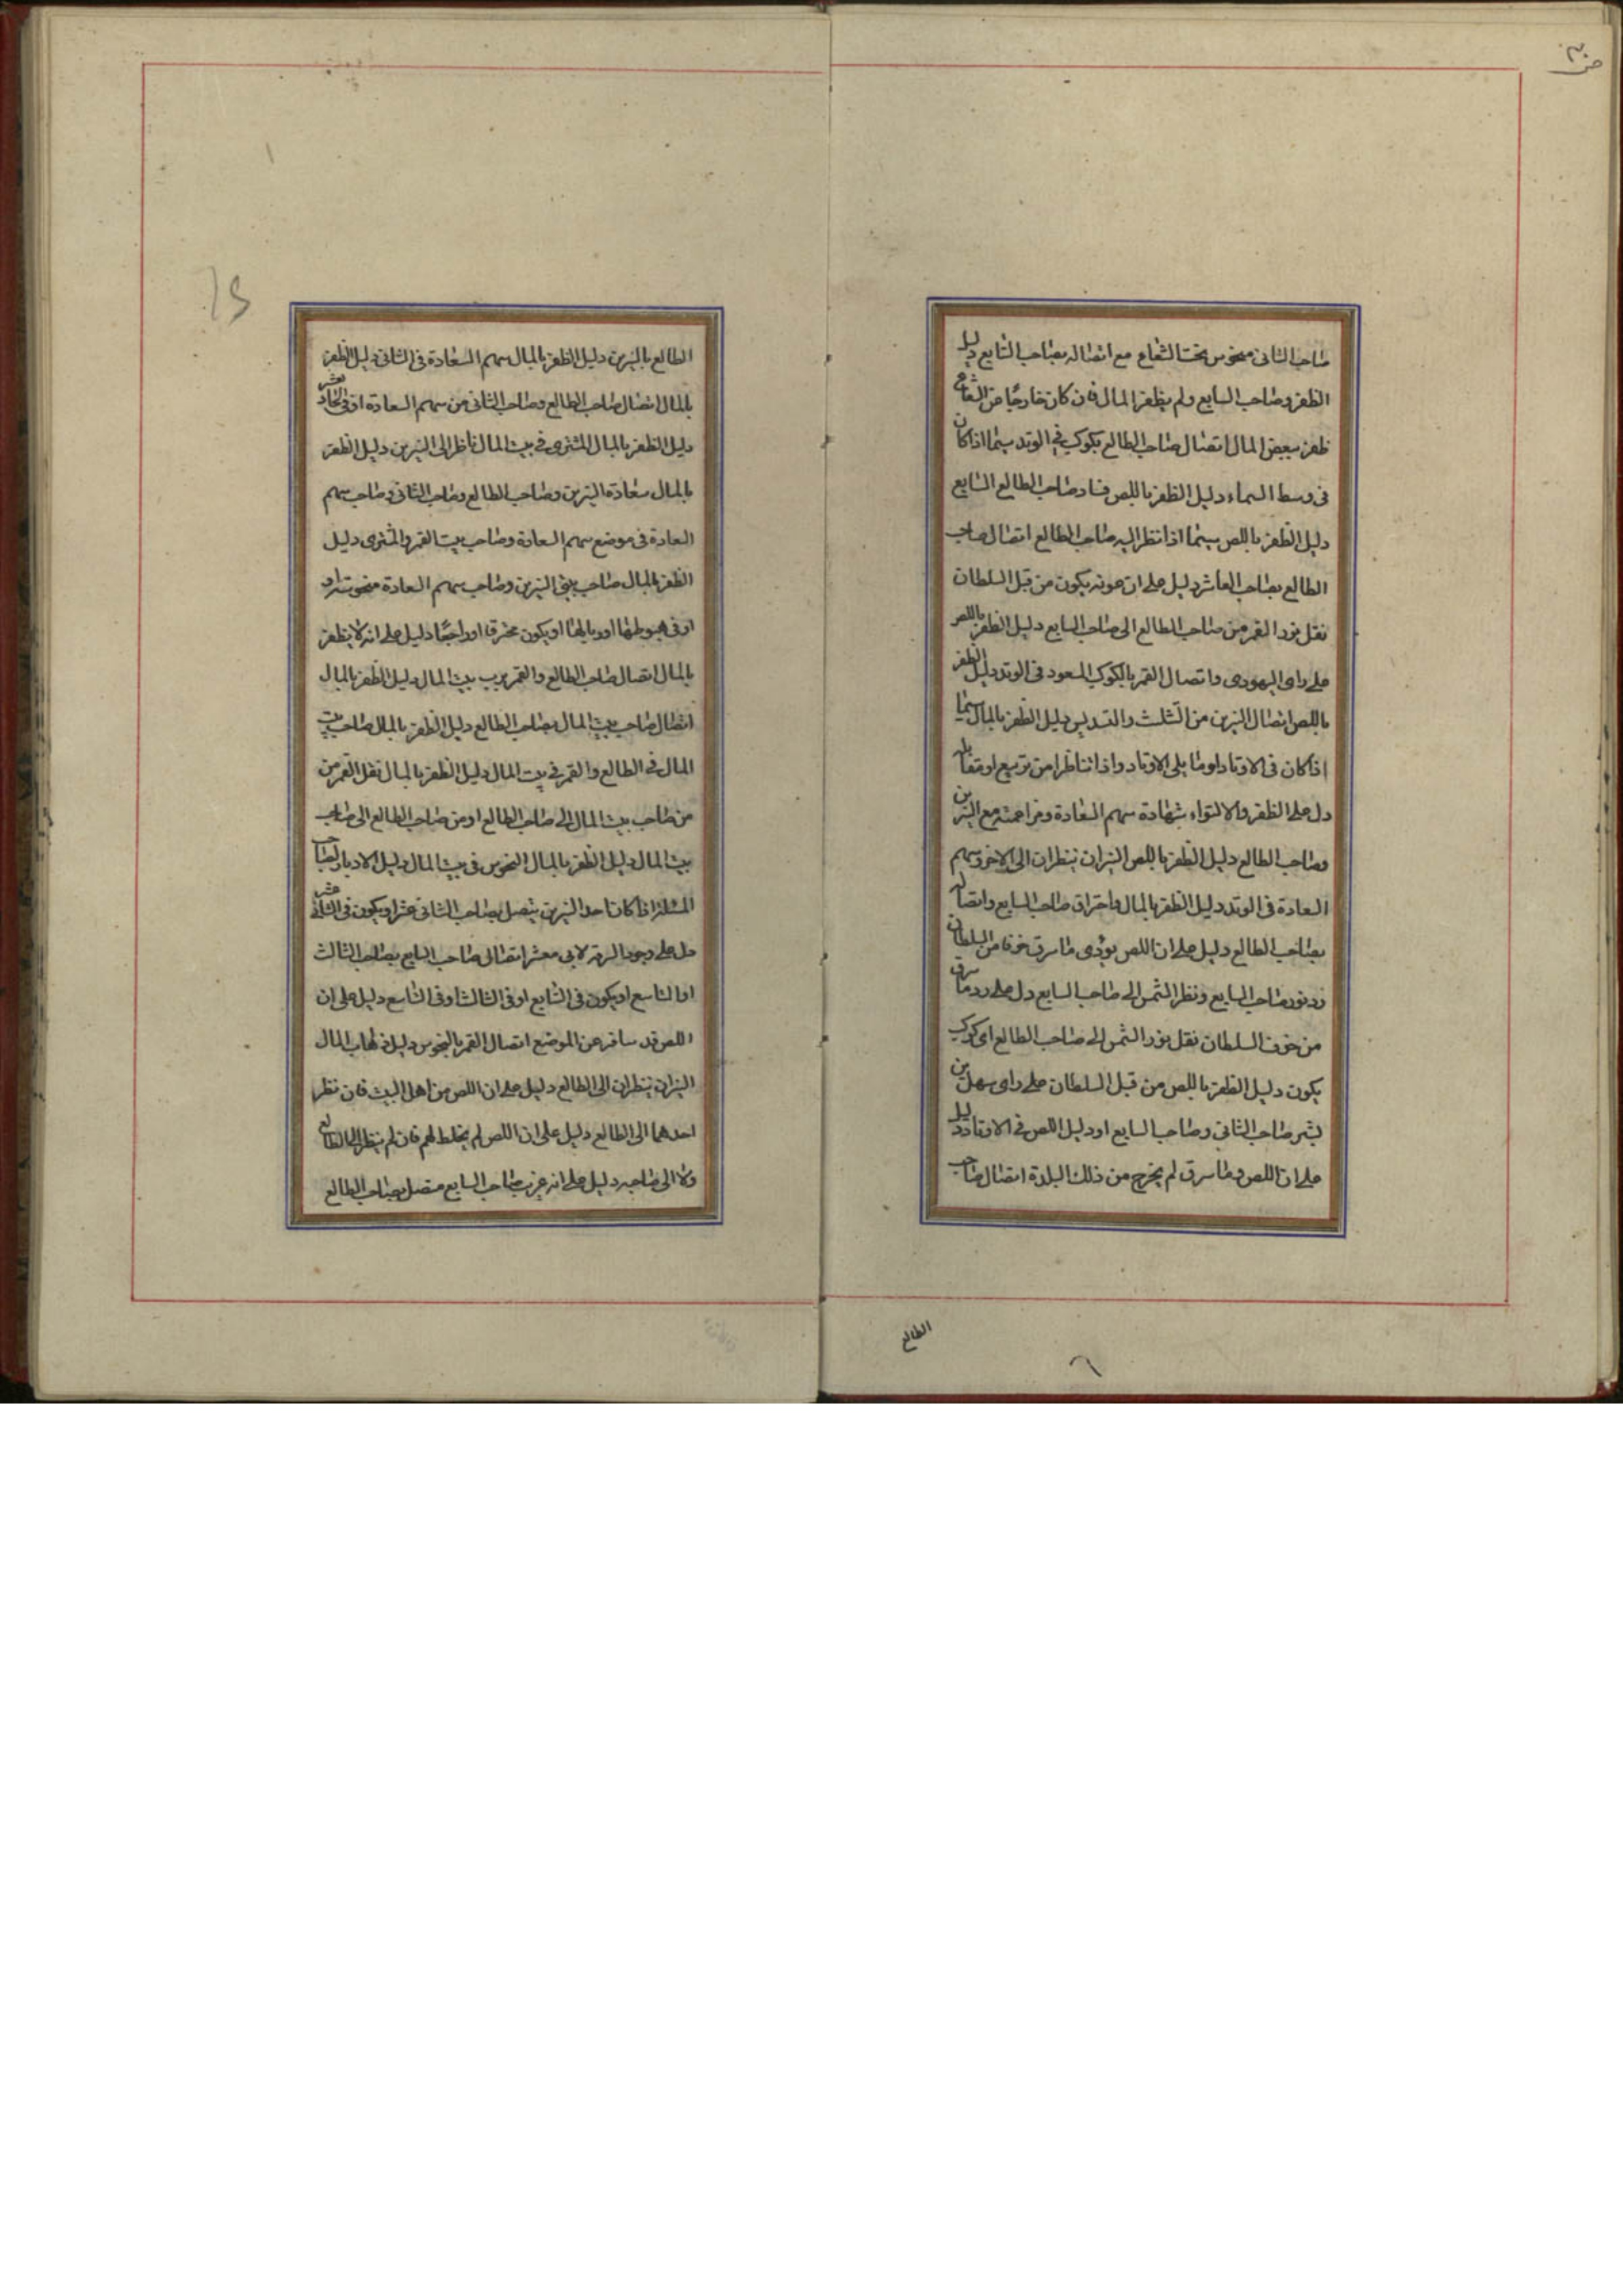 صاحب الثاني منحوس تحت الشعاع مع اتصاله بصاحب السابع دليل
الظفر وصاحب السابع ولم يظفر المال فان كان خارجا من الشعاع
ظفر ببعض المال اتصال صاحب الطالع بكوكب في الوتد سيما اذا كان
في وسط السماء دليل الظفر باللص فساد صاحب الطالع السابع
دليل الظفر باللص سيما اذا نظر اليه صاحب الطالع اتصال صاحب
الطالع بصاحب العاشر دليل على ان عونه يكون من قبل السلطان
نقل نور القمر من صاحب الطالع الى صاحب السابع دليل الظفر باللص
على راى اليهودى واتصال القمر بالكوكب المسعود في الوتد دليل الظفر
باللص اتصال النيرين من التثليث والتسديس دليل الظفر بالمال سيما
اذا كان في الاوتاد او ما يلى الاوتاد واذا تناظرا من تربيع او مقابلة
دل على الظفر والالتواء شهادة سهم السعادة ومزاحمته مع النيرين
وصاحب الطالع دليل الظفر باللص النيران ينظران الى الاخر وسهم
السعادة في الوتد دليل الظفر بالمال واحتراق صاحب السابع واتصاله
بصاحب الطالع دليل على ان اللص يؤدى ما سرق خوفا من السلطان
رد نور صاحب السابع ونظر الشمس الى صاحب السابع دل على رد ما سرق
من خوف السلطان نقل نور الشمس الى صاحب الطالع اى كوكب
يكون دليل الظفر باللص من قبل السلطان على راى سهل بن
بشر صاحب الثاني وصاحب السابع او دليل اللص في الاوتاد دليل
على ان اللص وما سرق لم يخرج من ذلك البلدة اتصال صاحب
الطالع
الطالع بالنيرين دليل الظفر بالمال سهم السعادة في الثاني دليل الظفر
بالمال اتصال صاحب الطالع وصاحب الثاني من سهم السعادة او في الحادى عشر
دليل الظفر بالمال المشترى في بيت المال ناظر الى النيرين دليل الظفر
بالمال سعادة النيرين وصاحب الطالع وصاحب الثاني وصاحب سهم
السعادة في موضع سهم السعادة وصاحب بيت القمر والمشترى دليل
الظفر بالمال صاحب بيتى النيرين وصاحب سهم السعادة منحوسة او
او في هبوطها او وبالها او يكون محترقا او راجعا دليل على انه لا يظفر
بالمال اتصال صاحب الطالع والقمر برب بيت المال دليل الظفر بالمال
اتصال صاحب بيت المال بصاحب الطالع دليل الظفر بالمال صاحب بيت
المال في الطالع والقمر في بيت المال دليل الظفر بالمال نقل القمر من
من صاحب بيت المال الى صاحب الطالع او من صاحب الطالع الى صاحب
بيت المال دليل الظفر بالمال النحوس في بيت المال دليل الادبار
المسئلة اذا كان احد النيرين يتصل بصاحب الثاني عشر او يكون في الثاني عشر
دل على وجود السرقة لابى معشر اتصال صاحب السابع بصاحب الثالث
او التاسع او يكون في السابع او في الثالث او في التاسع دليل على ان
اللص قد سافر عن الموضع اتصال القمر بالنحوس دليل ذهاب المال
النيران ينظران الى الطالع دليل على ان اللص من اهل البيت فان نظر
احدهما الى الطالع دليل على ان اللص لم يخلط لهم فان لم ينظر الى الطالع
ولا الى صاحبه دليل على انه غريب صاحب السابع متصل بصاحب الطالع